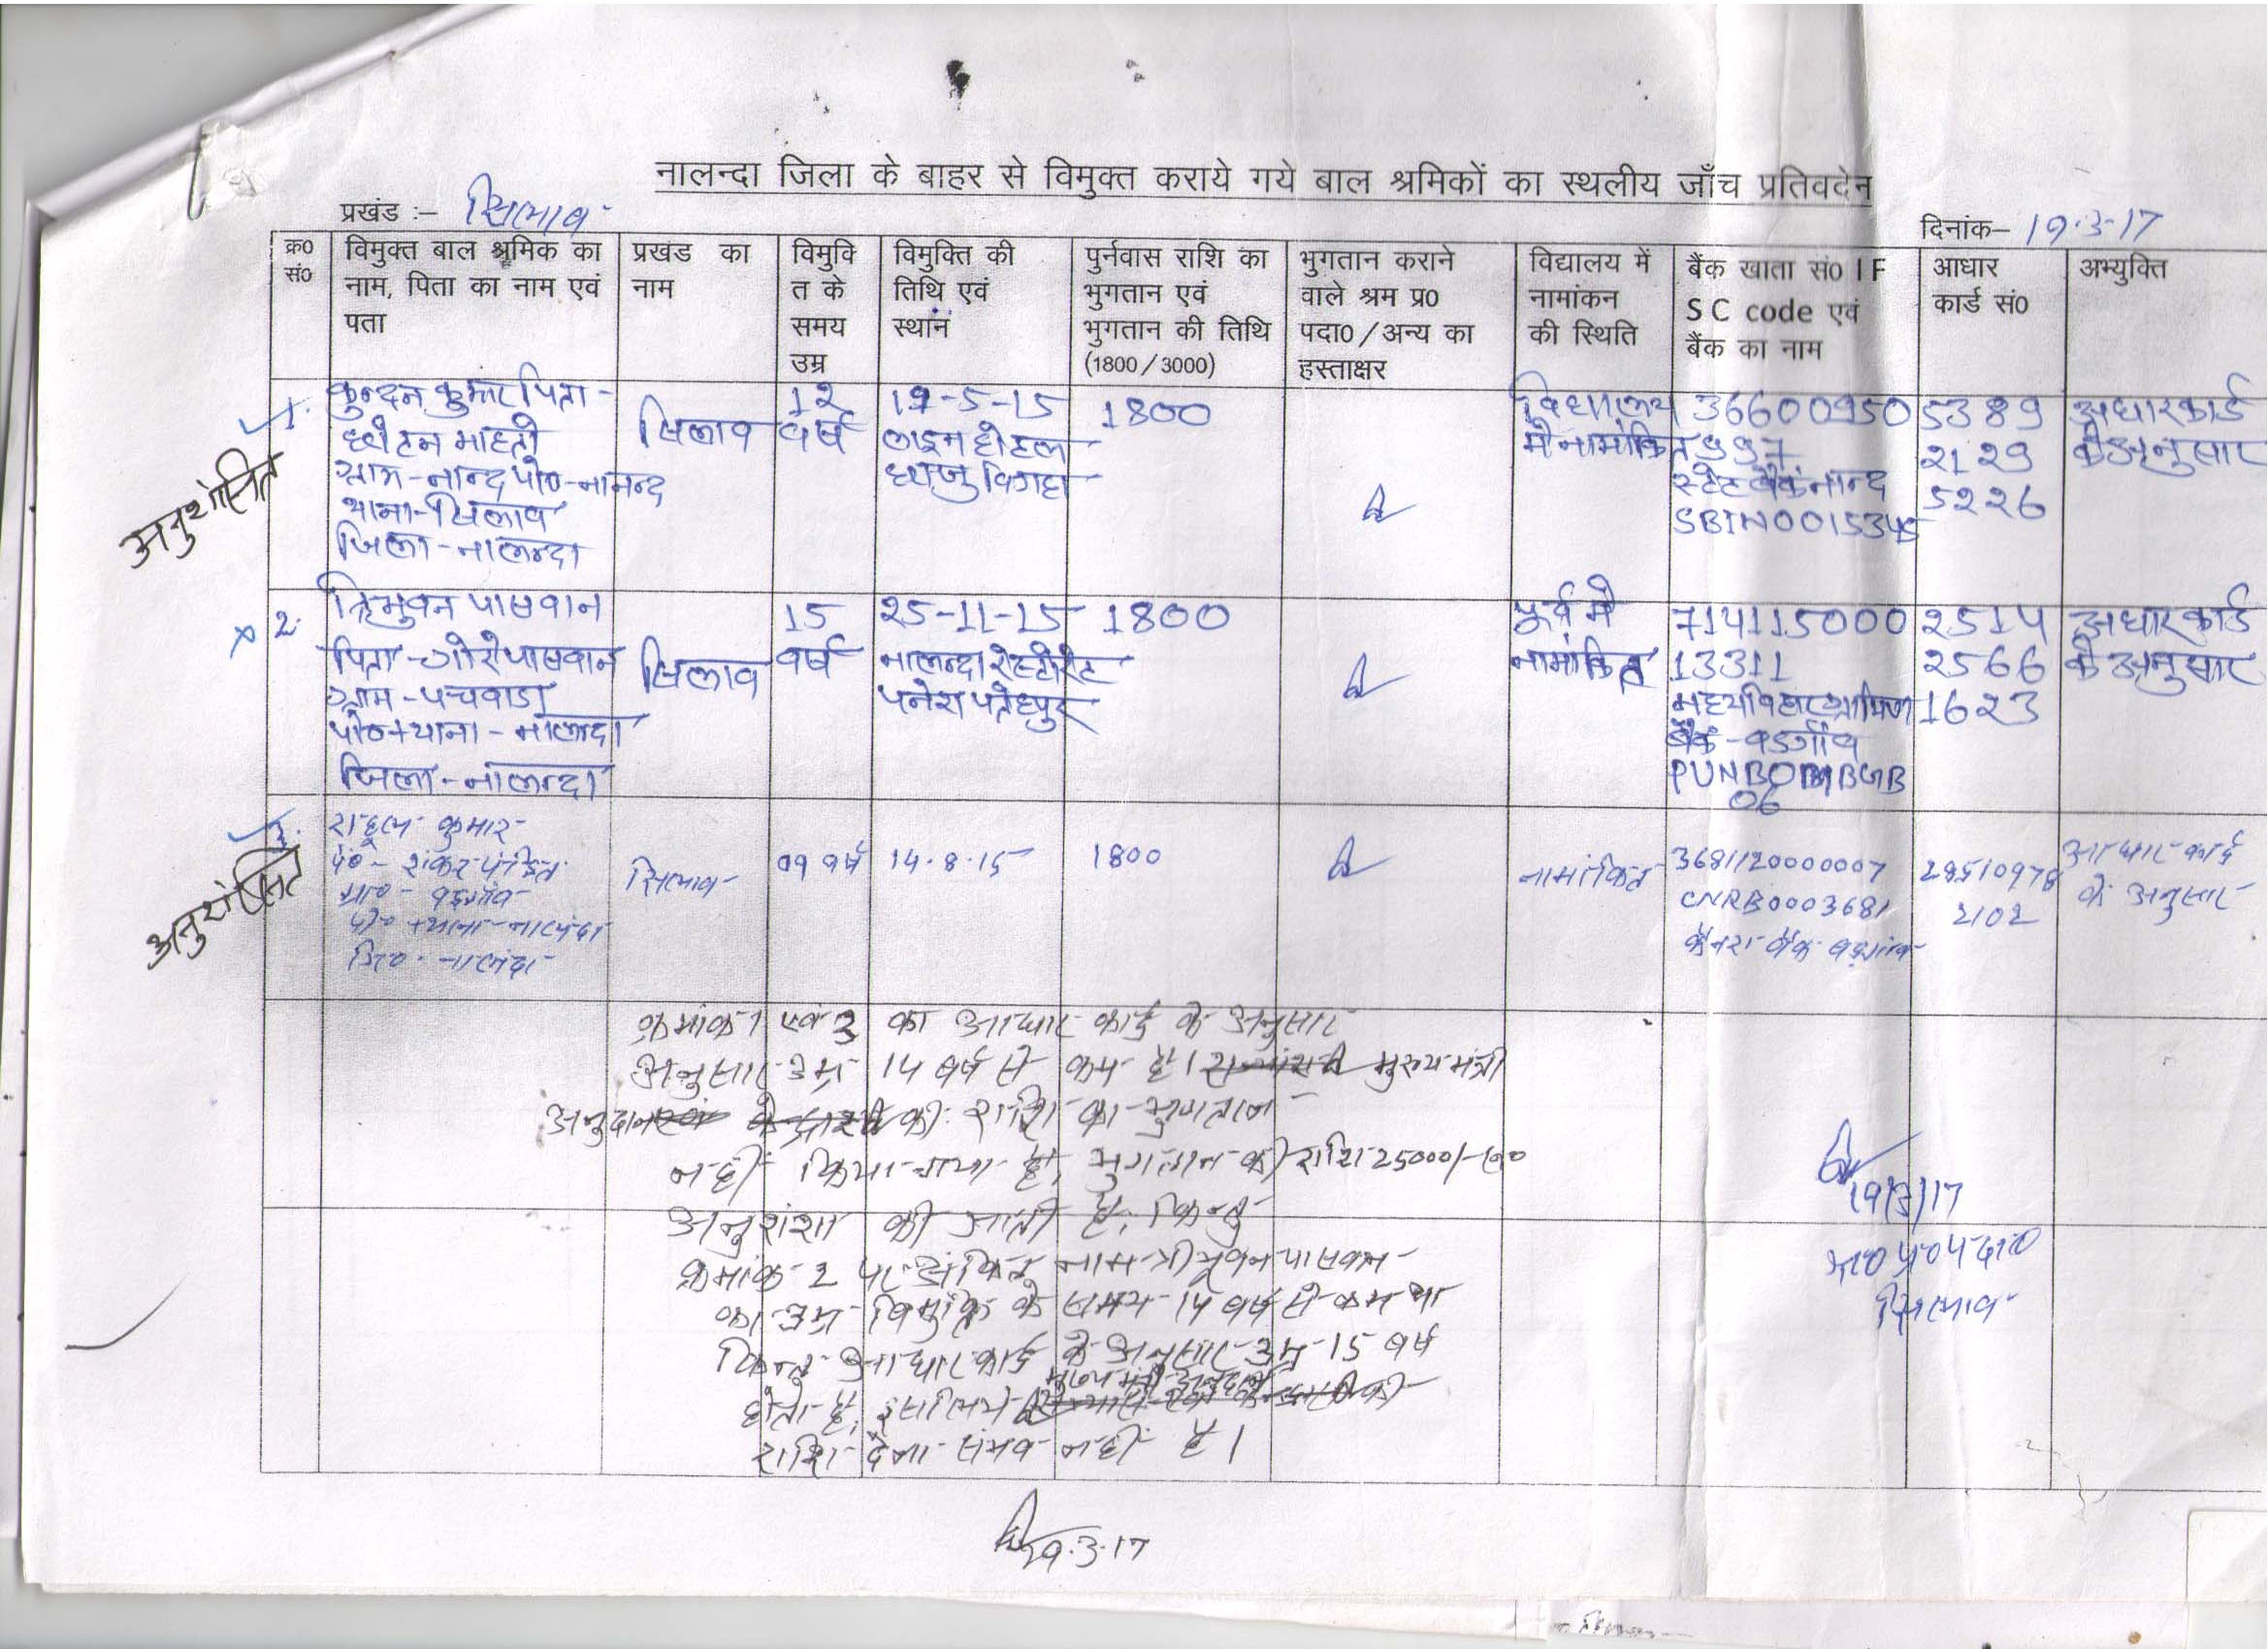 नालन्दा जिला के बाहर से विमुक्त कराये गये बाल श्रमिकों का स्थलीय जाँच प्रतिवदेन
प्रखंड :- सिलाव
दिनांक- 19.3.17
क्र0 सं0
विमुक्त बाल श्रमिक का नाम, पिता का नाम एवं पता
प्रखण्ड का नाम
विमुक्ति के समय उम्र
विमुक्ति की तिथि एवं स्थान
पुर्नवास राशि का भुगतान एवं भुगतान की तिथि (1800/3000)
भुगतान कराने वाले श्रम प्र0 पदा0/अन्य का हस्ताक्षर
विद्यालय में नामांकन की स्थिति
बैंक खाता सं0 IF SC code एवं बैंक का नाम
आधार कार्ड सं0
अभ्युक्ति
अनुशंसित
1.
कुन्दन कुमार पिता-
माहतो
ग्राम-नान्द पो0-नानन्द
थाना-सिलाव
जिला-नालन्दा
सिलाव
12 वर्ष
लाइन होटल
1800
विद्यालय
मे नामांकित
36600950
997
स्टेट बैंक नान्द
SBIN0015345
5389
2129
5226
अधार कार्ड
के अनुसार
2.
त्रिभुवन पासवान
पिता-गोरे पासवान
ग्राम-पचवाडा
पो0+थाना-नालन्दा
जिला-नालन्दा
सिलाव
15 वर्ष
25-11-15
नालन्दा रेस्टोरेंट
1800
पूर्व मे
नामांकित
714115000
13311
मध्य बिहार ग्रामिण
बैंक-बडगाँव
06
2514
2566
1623
अधार कार्ड
के अनुसार
अनुशंसित
3.
राहूल कुमार
पि0- शंकर पंडित
ग्रा0- बड़गाँव
पो0+थाना-नालंदा
जि0- नालंदा
सिलाव
09 वर्ष
14.8.15
1800
नामांकित
3681120000007
CNRB0003681
केनरा बैंक बड़गांव
28510978
2102
आधार कार्ड
के अनुसार
क्रमांक 1 एवं 3 का आधार कार्ड के अनुसार
अनुसार उम्र 14 वर्ष से कम है। मुख्यमंत्री
अनुदान की राशि का भुगतान
नहीं किया गया है, भुगतान की राशि 25000/-रू0
अनुशंशा की जाती है, किन्तु
क्रमांक-2 पर अंकित नाम त्रीभूवन पासवान
का उम्र विमुक्ति के समय 14 वर्ष से कम था
किन्तु आधार कार्ड के अनुसार उम्र 15 वर्ष
मुख्य मंत्री अनुदान
होता है, इसलिये की
राशि देना संभव नहीं है।
19/3/17
श्र0प्र0पदा0
सिलाव
19.3.17